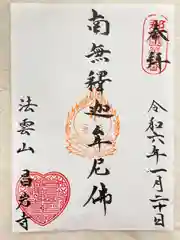 奉拝
令和六年一月二十日
南無釋迦牟尼佛
法雲山
昌岩寺